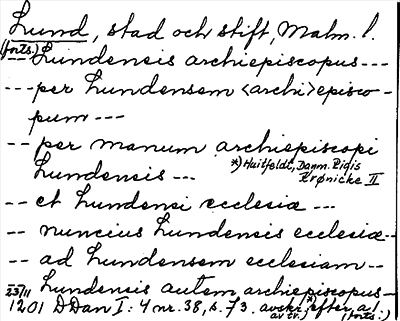 Lund, stad och stift, Malm. l.
(forts.)
-- Lundensis archiepiscopus ---
--- per Lundensem <archi>episco-
pum ---
-- per manum archiepiscopi
Lundensis ---
*) Huitfeldt, Danm. Rigis
Krønicke II
-- et Lundensi ecclesiæ ---
-- nuncius Lundensis ecclesiæ --
-- ad Lundensem ecclesiam --
-- Lundensis autem archiepiscopus -
23/11
1201 DDan I: 4 nr. 38, s. 73. avskr. *) efter a)
av cr.) (forts.)